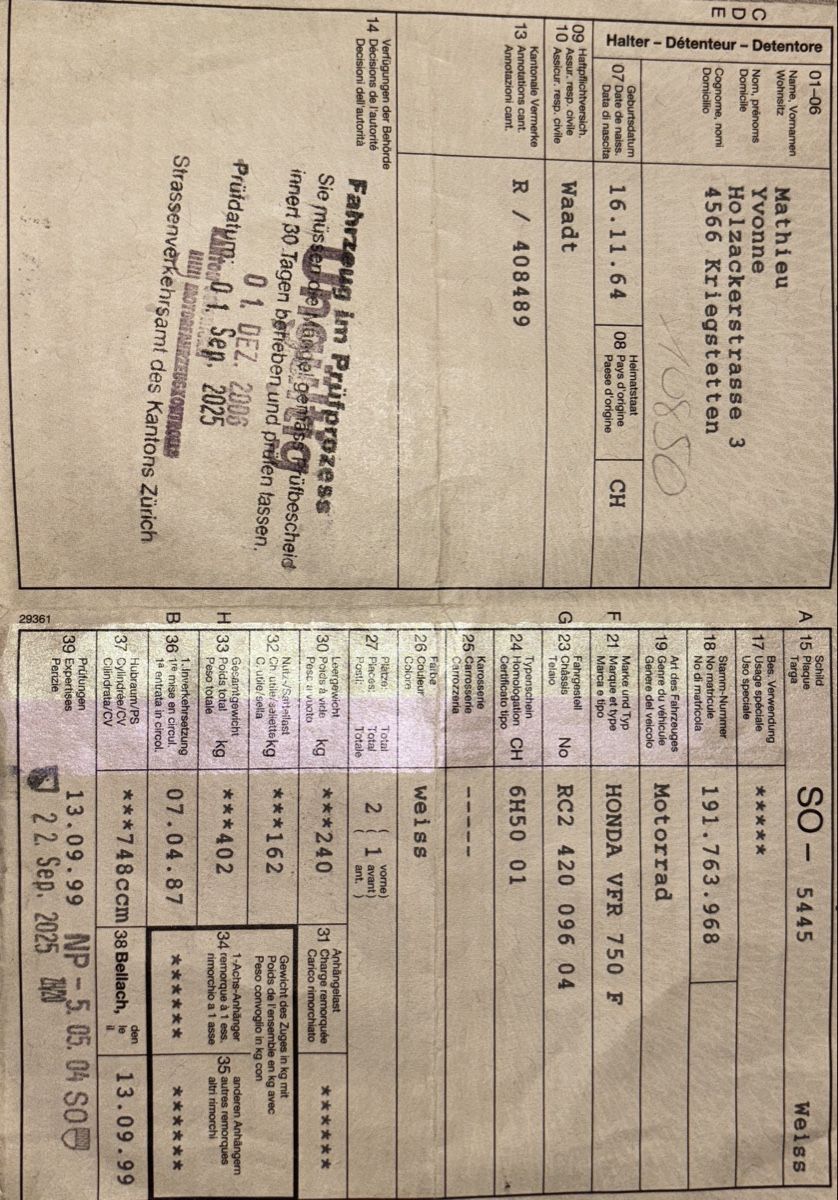 C
D
E
Halter – Détenteur – Detentore
01–06
Name, Vornamen
Wohnsitz
Nom, prénoms
Domicile
Cognome, nomi
Domicilio
Mathieu
Yvonne
Holzackerstrasse 3
4566 Kriegstetten
10850
07 Geburtsdatum
Date de naiss.
Data di nascita
16.11.64
08 Heimatstaat
Pays d'origine
Paese d'origine
CH
09 Haftpflichtversich.
10 Assur. resp. civile
Assicur. resp. civile
Waadt
13 Kantonale Vermerke
Annotations cant.
Annotazioni cant.
R / 408489
14 Verfügungen der Behörde
Décisions de l'autorité
Decisioni dell'autorità
Fahrzeug im Prüfprozess
Sie müssen die Mängel gemäss Prüfbescheid
innert 30 Tagen beheben und prüfen lassen.
Ungültig
01. DEZ. 2006
Prüfdatum: 01. Sep. 2025
Strassenverkehrsamt des Kantons Zürich
A 15 Schild
Plaque
Targa
SO – 5445 Weiss
17 Bes. Verwendung
Usage spéciale
Uso speciale
*****
18 Stamm-Nummer
No matricule
No di matricola
191.763.968
19 Art des Fahrzeuges
Genre du véhicule
Genere del veicolo
Motorrad
F 21 Marke und Typ
Marque et type
Marca e tipo
HONDA VFR 750 F
G 23 Fahrgestell
Châssis No
Telaio
RC2 420 096 04
24 Typenschein
Homologation CH
Certificato tipo
6H50 01
25 Karosserie
Carrosserie
Carrozzeria
-----
26 Farbe
Couleur
Colore
weiss
27 Plätze: Total
Places: Total
Posti: Totale
2 ( 1 vorne)
avant)
ant.)
30 Leergewicht
Poids à vide kg
Peso a vuoto
***240
31 Anhängelast
Charge remorquée
Carico rimorchiato
******
32 Nutz-/Sattellast
Ch. utile/sellette kg
C. utile/sella
***162
Gewicht des Zuges in kg mit
Poids de l'ensemble en kg avec
Peso convoglio in kg con
H 33 Gesamtgewicht
Poids total kg
Peso totale
***402
34 1-Achs-Anhänger
remorque à 1 ess.
rimorchio a 1 asse
35 anderen Anhängern
autres remorques
altri rimorchi
B 36 1.Inverkehrsetzung
1re mise en circul.
1a entrata in circol.
07.04.87
****** ******
37 Hubraum/PS
Cylindrée/CV
Cilindrata/CV
***748ccm
38 Bellach, den
le
il
13.09.99
39 Prüfungen
Expertises
Perizie
13.09.99 NP - 5. 05. 04 SO
22. Sep. 2025
29361